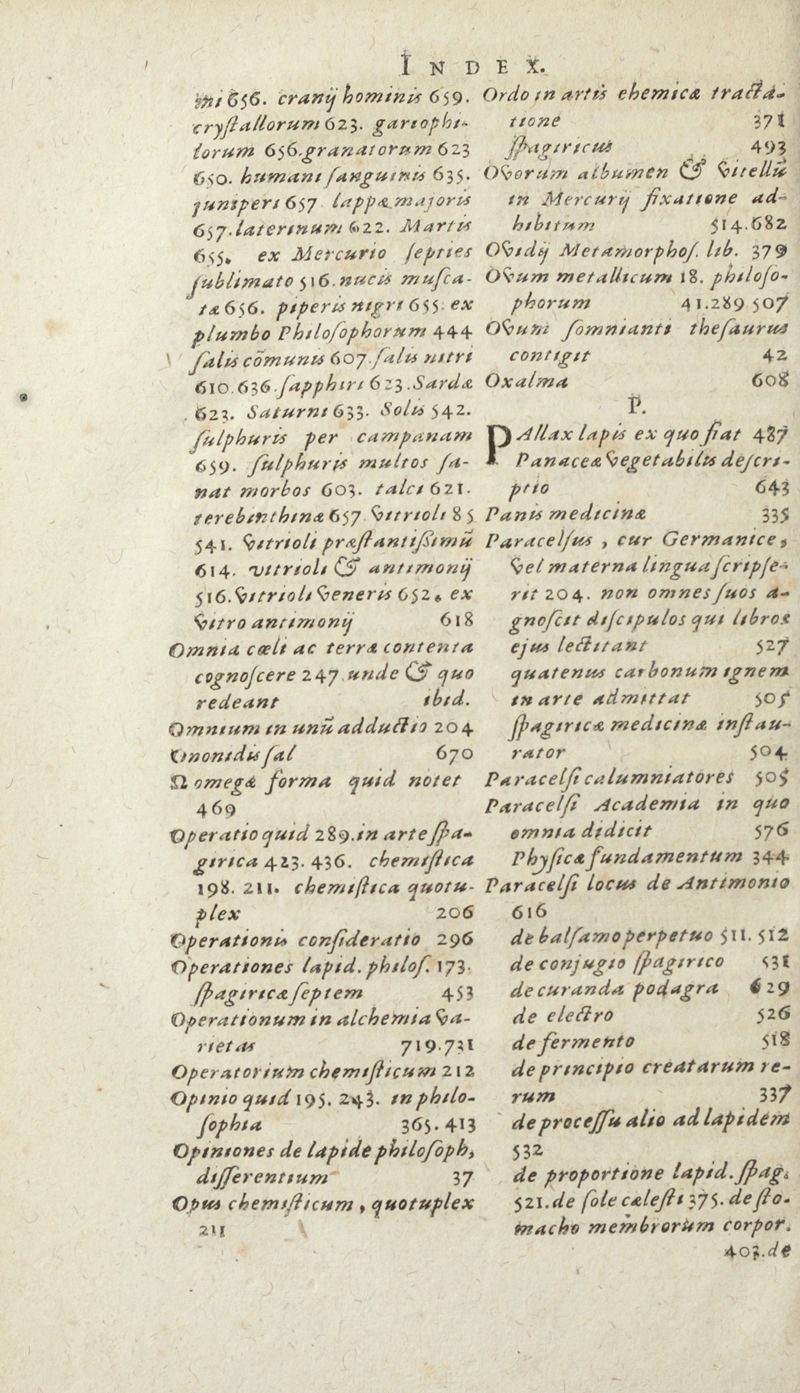 INDEX.
ini 656. cranij hominis 659.
crystallorum 623. gariophi-
lorum 656. granatorum 623
650. humani sanguinis 635.
juniperi 657 lappæ majoris
657. laterinum 622. Martis
655. ex Mercurio septies
sublimato 516. nucis musca-
tæ 656. piperis nigri 655. ex
plumbo Philosophorum 444
salis cõmunis 607. salis nitri
610. 636. sapphiri 623. Sardæ
623. Saturni 633. Solis 542.
sulphuris per campanam
659. sulphuris multos sa-
nat morbos 603. talci 621.
terebinthinæ 657. vitrioli 85
541. vitrioli præstantissimũ
614. vitrioli & antimonij
516. vitrioli veneris 652. ex
vitro antimonij 618
Omnia cœli ac terræ contenta
cognoscere 247. unde & quo
redeant ibid.
Omnium in unũ adductio 204
Ononidis sal 670
Ω omegæ forma quid notet
469
Operatio quid 289. in arte spa-
girica 423. 436. chemistica
198. 211. chemistica quotu-
plex 206
Operationis consideratio 296
Operationes lapid. philos. 173.
spagiricæ septem 453
Operationum in alchemia va-
rietas 719. 731
Operatorium chemisticum 212
Opinio quid 195. 243. in philo-
sophia 365. 413
Opiniones de lapide philosoph,
differentium 37
Opus chemisticum, quotuplex
211
Ordo in artis chemicæ tracta-
tione 371
spagiricus 493
Ovorum albumen & vitellũ
in Mercurij fixatione ad-
hibitum 514. 682
Ovidij Metamorphos. lib. 379
Ovum metallicum 18. philoso-
phorum 41. 289 507
Ovum somnianti thesaurus
contigit 42
Oxalma 608
P.
PAllax lapis ex quo fiat 487
Panaceæ vegetabilis descri-
ptio 643
Panis medicinæ 335
Paracelsus, cur Germanice,
vel materna lingua scripse-
rit 204. non omnes suos a-
gnoscit discipulos qui libros
ejus lectitant 527
quatenus carbonum ignem
in arte admittat 505
spagiricæ medicinæ instau-
rator 504
Paracelsi calumniatores 505
Paracelsi Academia in quo
omnia didicit 576
Physicæ fundamentum 344
Paracelsi locus de Antimonio
616
de balsamo perpetuo 511. 512
de conjugio spagirico 531
de curanda podagra 629
de electro 526
de fermento 518
de principio creatarum re-
rum 337
de processu alio ad lapidem
532
de proportione lapid. spag.
521. de sole cælesti 375. de sto-
macho membrorum corpor.
403. de